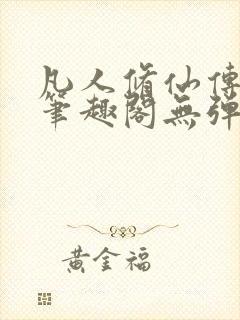 凡人脩仙傳
筆趣閣無彈
黃金福